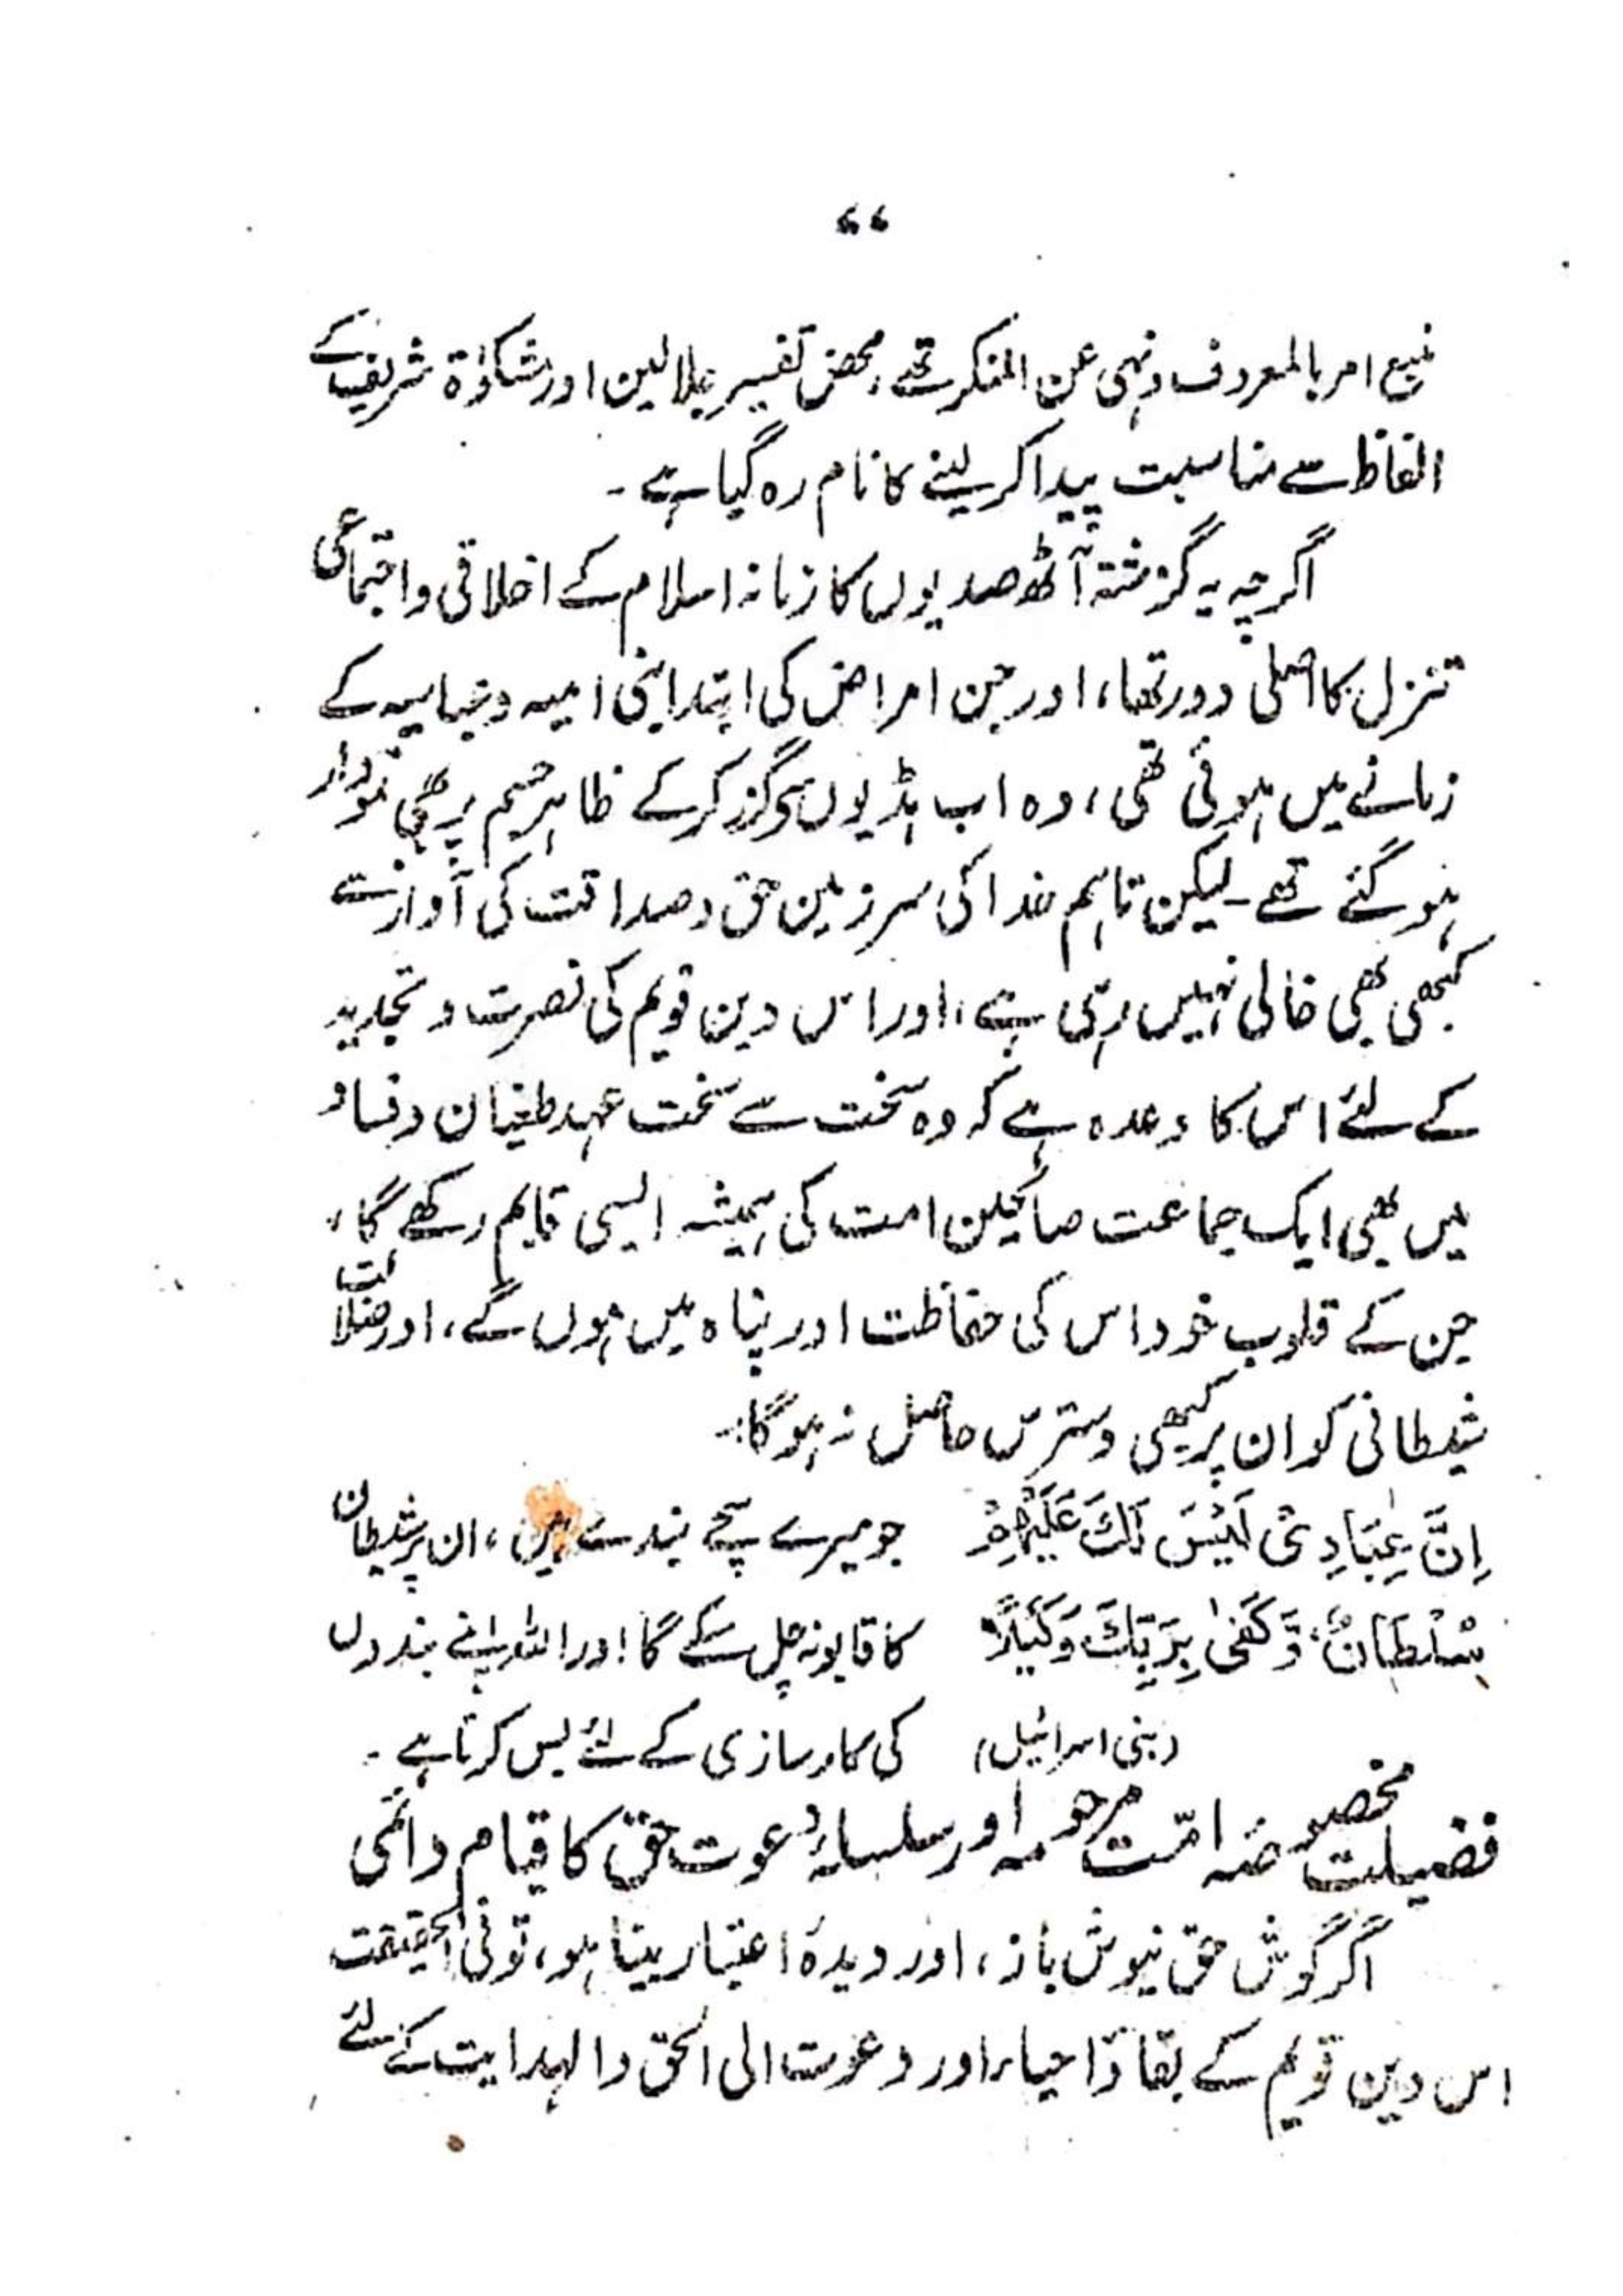 ۷۷
منبع امر بالمعروف ونہی عن المنکر تھے، محض تفسیر جلالین اور مشکوٰۃ شریف کے
الفاظ سے مناسبت پیدا کر لینے کا نام رہ گیا ہے۔
اگرچہ یہ گزشتہ آٹھ صدیوں کا زمانہ اسلام کے اخلاقی واجتماعی
تنزل کا اصلی دور تھا، اور جن امراض کی ابتدا بنی امیہ و عباسیہ کے
زمانے میں ہوئی تھی، وہ اب ہڈیوں سے گزر کر کے ظاہر جسم پر بھی نمودار
ہو گئے تھے۔ لیکن تاہم خدا کی سرزمین حق و صداقت کی آواز سے
کبھی بھی خالی نہیں رہی ہے، اور اس دین قویم کی نصرت و تجدید
کے لئے اس کا وعدہ ہے کہ وہ سخت سے سخت عہد طغیان و فساد
میں بھی ایک جماعت صالحین امت کی ہمیشہ ایسی قایم رکھے گا،
جن کے قلوب خود اس کی حفاظت اور پناہ میں ہوں گے، اور ضلالت
شیطانی کو ان پر کبھی دسترس حاصل نہ ہوگا:۔
اِنَّ عِبَادِیْ لَیْسَ لَكَ عَلَیْهِمْ جو میرے سچے بندے ہیں، ان پر شیطان
سُلْطَانٌ، وَّكَفٰی بِرَبِّكَ وَكِیْلًا کا قابو نہ چل سکے گا! اور اللہ اپنے بندوں
(بنی اسرائیل) کی کارسازی کے لئے بس کرتا ہے۔
فضیلت مخصوصہ امّت مرحومہ اور سلسلۂ دعوت حق کا قیام دائمی
اگر گوش حق نیوش باز، اور دیدۂ اعتبار بینا ہو، تو فی الحقیقت
اس دین قویم کے بقا و احیاء اور دعوت الی الحق والہدایت کے لئے